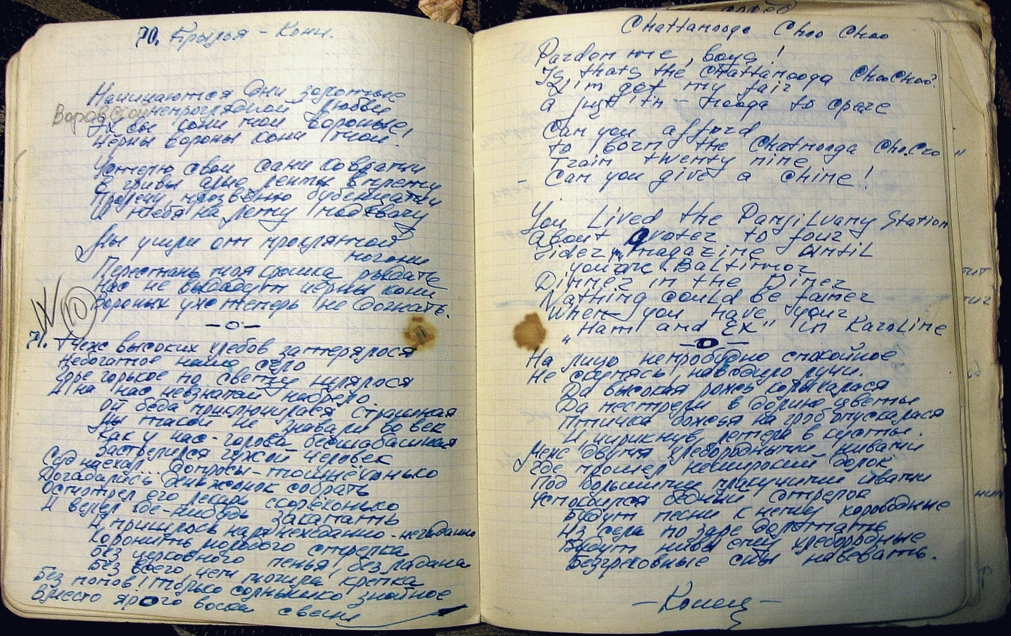 70. Крылья - Кони.
Начинаются дни золотые
Воровской непроглядной любви
Эх вы кони мои вороные!
Чёрны вороны кони мои.
Устелю свои сани коврами
В гривы алые ленты вплету
Пролечу, прозвеню бубенцами
И тебя на лету подхвачу
Мы ушли от проклятой
погони
Перестань моя крошка рыдать
Нас не выдадут чёрны кони
Вороных уж теперь не догнать.
-о-
10
71. Меж высоких хлебов затерялося
Небогатое наше село
Горе горькое по свету шлялося
И на нас невзначай набрело.
Ой беда приключилася страшная
Мы такой не знавали во век
Как у нас - голова бесшабашная
Застрелился чужой человек
Суд наехал допросы - тошнёхонько
Догадались деньжонок собрать
Осмотрел его лекарь скорёхонько
И велел где-нибудь закапать
И пришлось нам нежданно-негаданно
Хоронить молодого стрелка
Без церковного пенья, без ладана
Без всего чем могила крепка
Без попов! Только солнышко знойное
Вместо ярого воска свечи
Chattanooga Choo Choo
Pardon me, boys!
Is thats the Chattanooga ChooChoo?
my fair
a just in - nooga to spare
Can you afford
to born the Chatnooga Cho.Cro "
Train twenty nine
- Can you give a chine!
You Lived the Panjilvany Station
About qvoter to four
magazine Until
youare Baltimor
Dinner in the Diner
Nathing could be fainer
When you have your
"Ham and Ex" in Karoline
-о-
На лицо непробудно спокойное
Не скупясь наводило лучи.
Да высокая рожь колыхалася
Да пестрели в долине цветы
Птичка божья на гроб опускалася
И чирикнув летела в кусты.
Меж двумя хлебородными нивами
Где прошел неширокий долок
Под большими плакучими ивами
Успокоился бедный стрелок
Будут песни к нему хороводные
Из села по заре долетать
Будут нивы ему хлебородные
Безгреховные сны навевать.
- Конец -